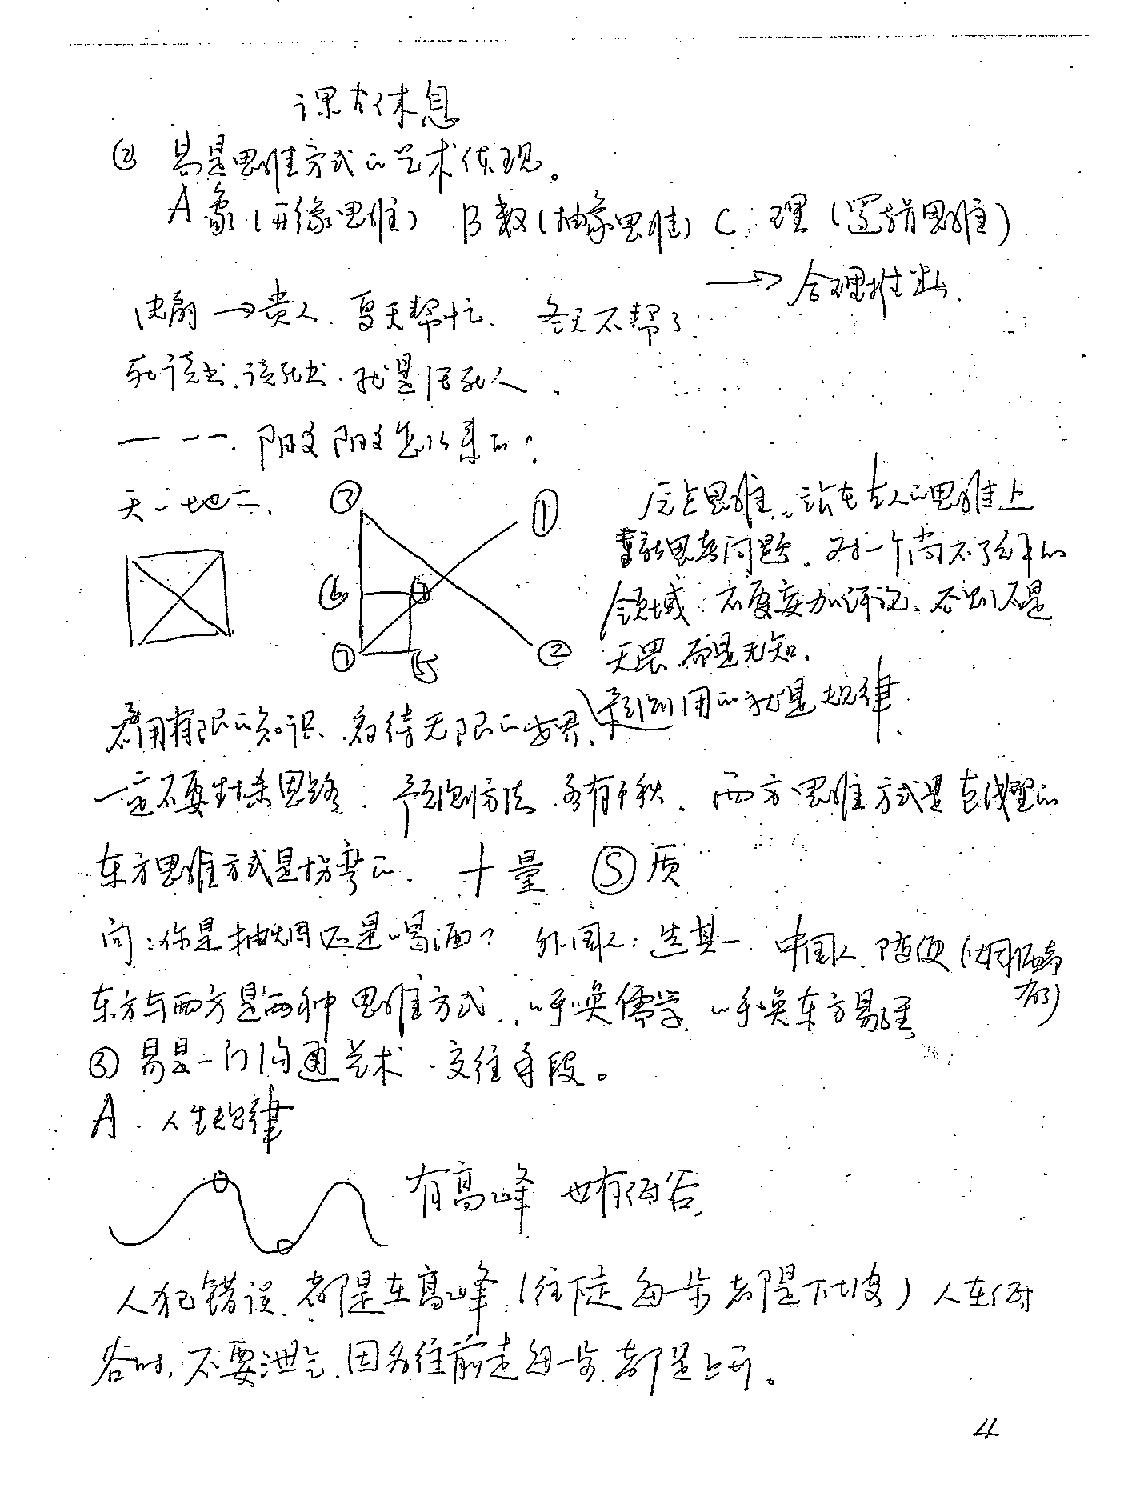 课有休息
② 易是思维方式的艺术体现。
A 象(形像思维) B 数(抽象思维) C: 理 (逻辑思维)
→ 合理推出.
→贵人. 夏天帮忙. 冬天不帮了.
死读书, 读死书. 就是活死人.
— - -. 阳爻阴爻怎么来的?
天一地二.
③ ①
⑥ ④
⑦ ⑤ ②
思维. 站在古人的思维上
重新思考问题. 对一个尚不了解的
领域: 不要妄加评论、否则不是
无畏. 而是无知.
预测用的就是规律.
用有限的知识、看待无限的世界、
一定不要封杀思路. 预测方法. 各有千秋. 西方思维方式是直线型的
东方思维方式是拐弯的. 十量 Ⓢ 质
问:你是抽烟还是喝酒? 外国人: 选其一. 中国人. 随便(烟酒都有)
东方与西方是两种思维方式. 呼唤儒学. 呼唤东方易经
③ 易是一门沟通艺术. 交往手段。
A. 人生规律
有高峰 也有低谷.
人犯错误. 都是在高峰.(往 每一步都是下坡) 人在低
谷时, 不要泄气. 因为往前走每一步都是上升。
4